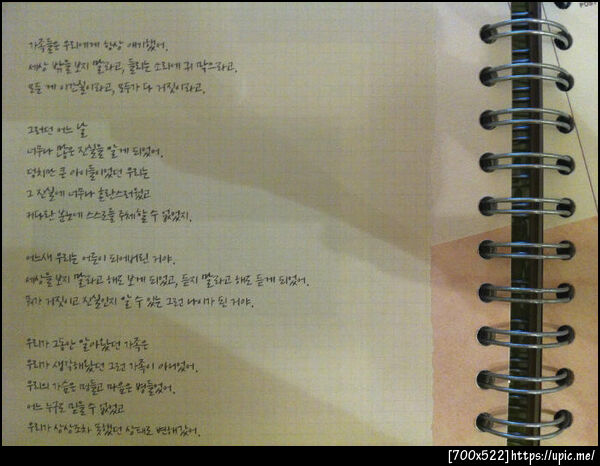 가족들은 우리에게 항상 얘기했어.
세상 밖을 보지 말라고, 들리는 소리에 귀 막으라고.
모든 게 이간질이라고, 모두가 다 거짓이라고.
그러던 어느 날
너무나 많은 진실을 알게 되었어.
덩치만 큰 아이들이었던 우리는
그 진실에 너무나 혼란스러웠고
커다란 분노에 스스로를 주체할 수 없었지.
어느새 우리는 어른이 되어버린 거야.
세상을 보지 말라고 해도 보게 되었고, 듣지 말라고 해도 듣게 되었어.
뭐가 거짓이고 진실인지 알 수 있는 그런 나이가 된 거야.
우리가 그동안 알아왔던 가족은
우리가 생각해왔던 그런 가족이 아니었어.
우리의 가슴은 멍들고 마음은 병들었어.
어느 누구도 믿을 수 없었고
우리가 상상조차 못했던 상태로 변해갔어.
[700x522]https://upic.me/